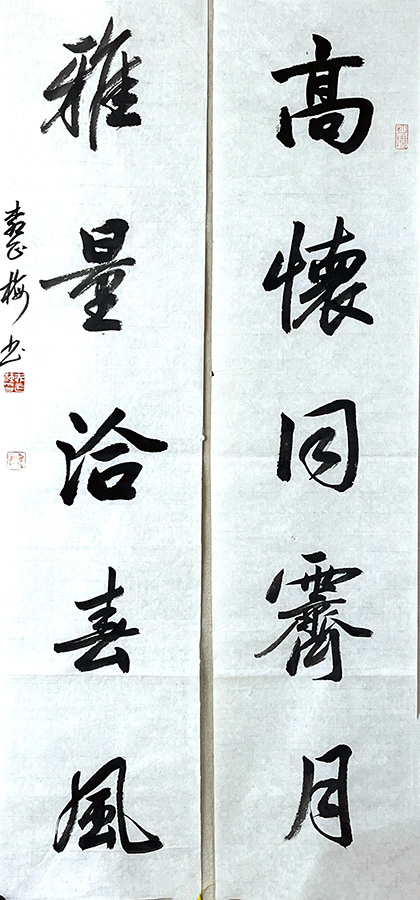 高懷同霽月
雅量洽春風
正梅书